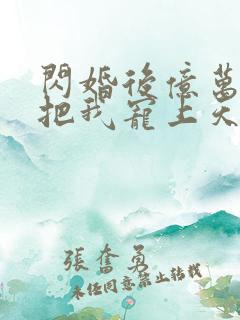 閃婚後億萬
把我寵上天
張奮勇
未經同意禁止轉載